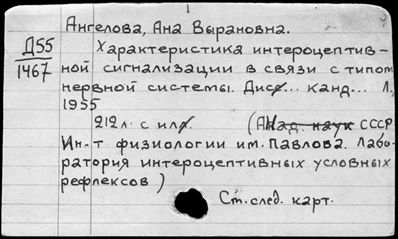 Ангелова, Ана Вырановна.
Д55
1467
Характеристика интероцептив-
ной сигнализации в связи с типом
нервной системы. Дис... канд... Л,
1955
212 л. с ил. (АНад. наук СССР.
Ин-т физиологии им. Павлова. Лабо-
ратория интероцептивных условных
рефлексов)
См. след. карт.